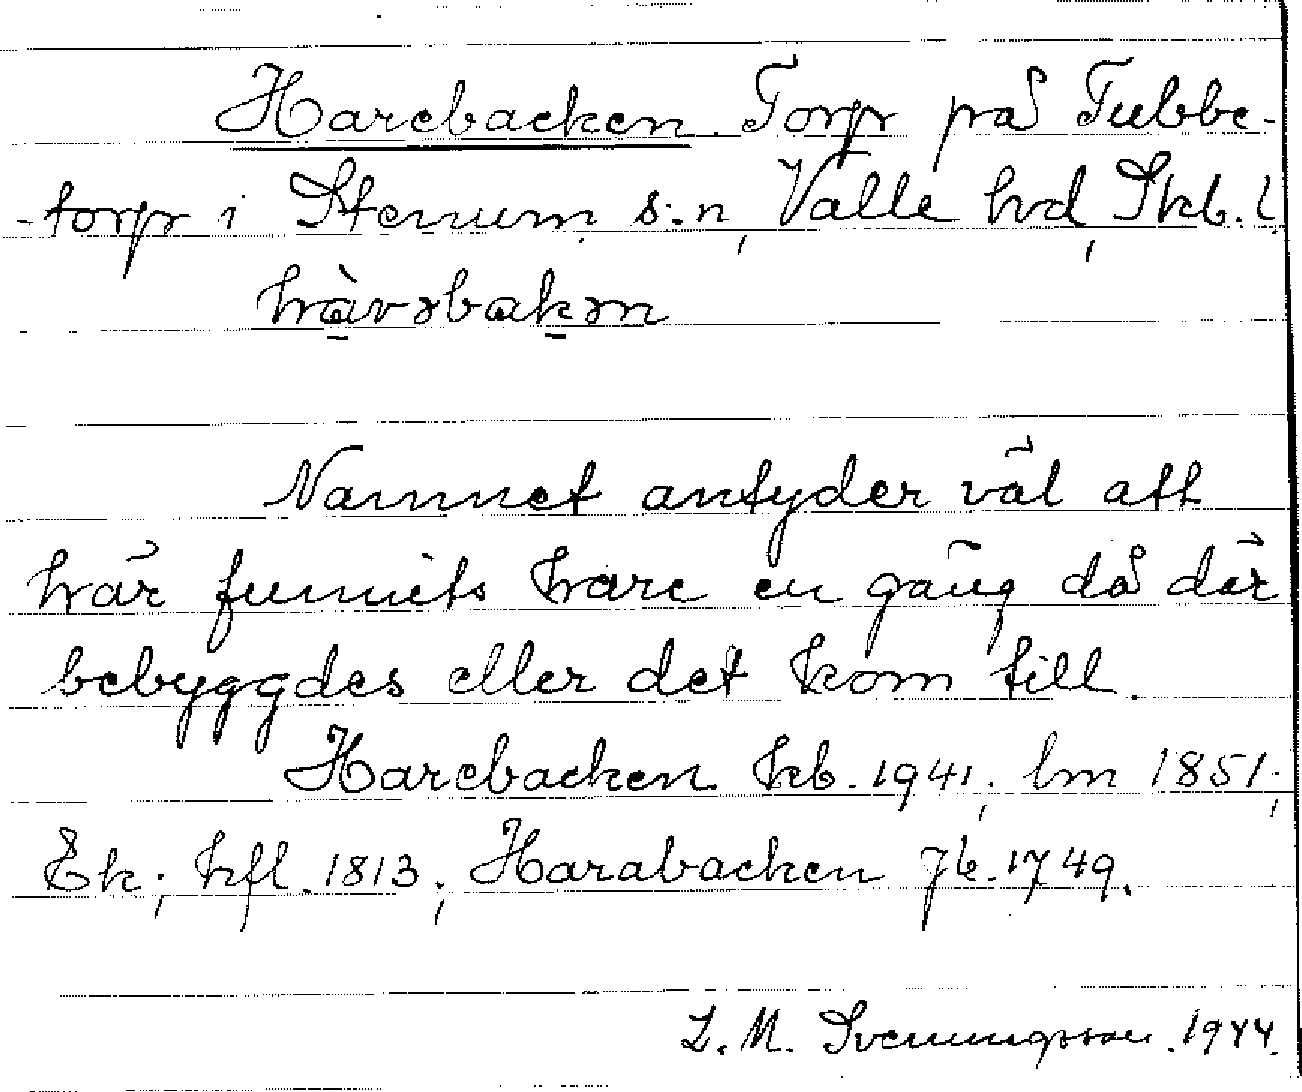 Harebacken. Torp på Tubbe-
-torp i Stenum s:n, Valle hd, Skb. l.
hàrəbakən
Namnet antyder väl att
här funnits hare en gång då där
bebyggdes eller det kom till.
Harebacken kb. 1941; lm 1851;
Ek; hfl. 1813; Harabacken jb. 1749.
L. M. Svenungsson. 1944.